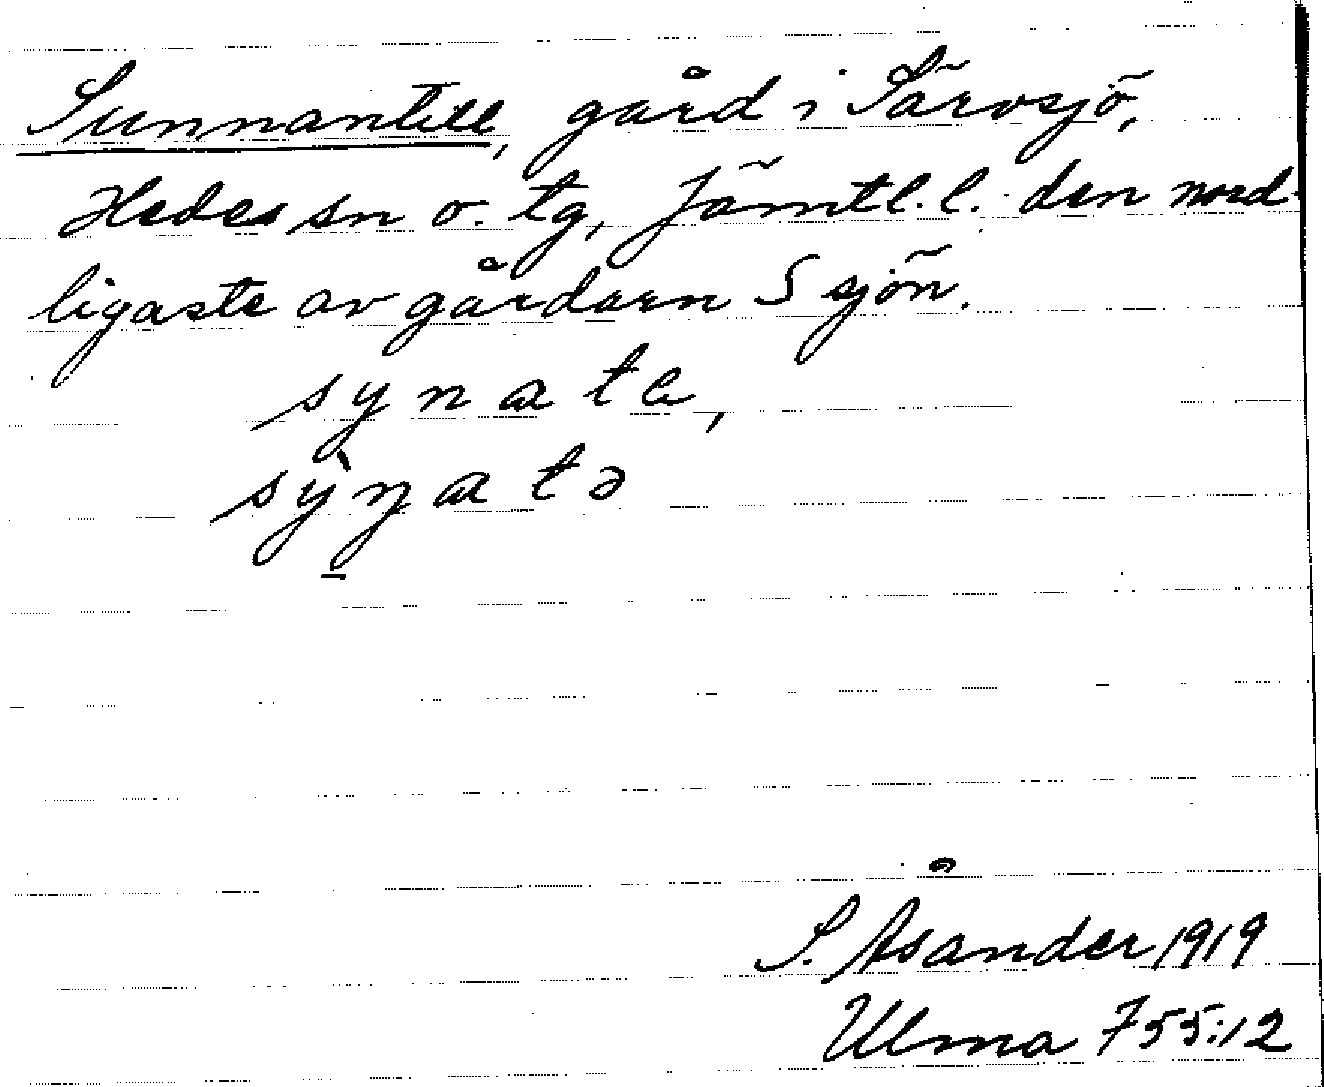 Sunnantill, gård i Särvsjö,
Hedes sn o. tg, Jämtl. l. den nord-
ligaste av gårdarn S sjön.
synate,
sỳn̲atə
S. Åsander 1919
Ulma 755:12